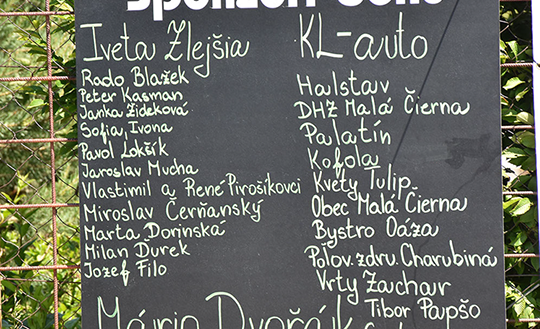 Iveta Zlejšia
Rado Blažek
Peter Kasman
Janka Žideková
Sofia, Ivona
Pavol Lokšík
Jaroslav Mucha
Vlastimil a René Pirošíkovci
Miroslav Čerňanský
Marta Dorinská
Milan Ďurek
Jozef Filo
Mário Dvořák
KL-auto
Halstav
DHZ Malá Čierna
Palatín
Kofola
Kvety Tulip
Obec Malá Čierna
Bystro Oáza
Poľov. zdru. Charubiná
Vrty Žuchar
Tibor Papšo